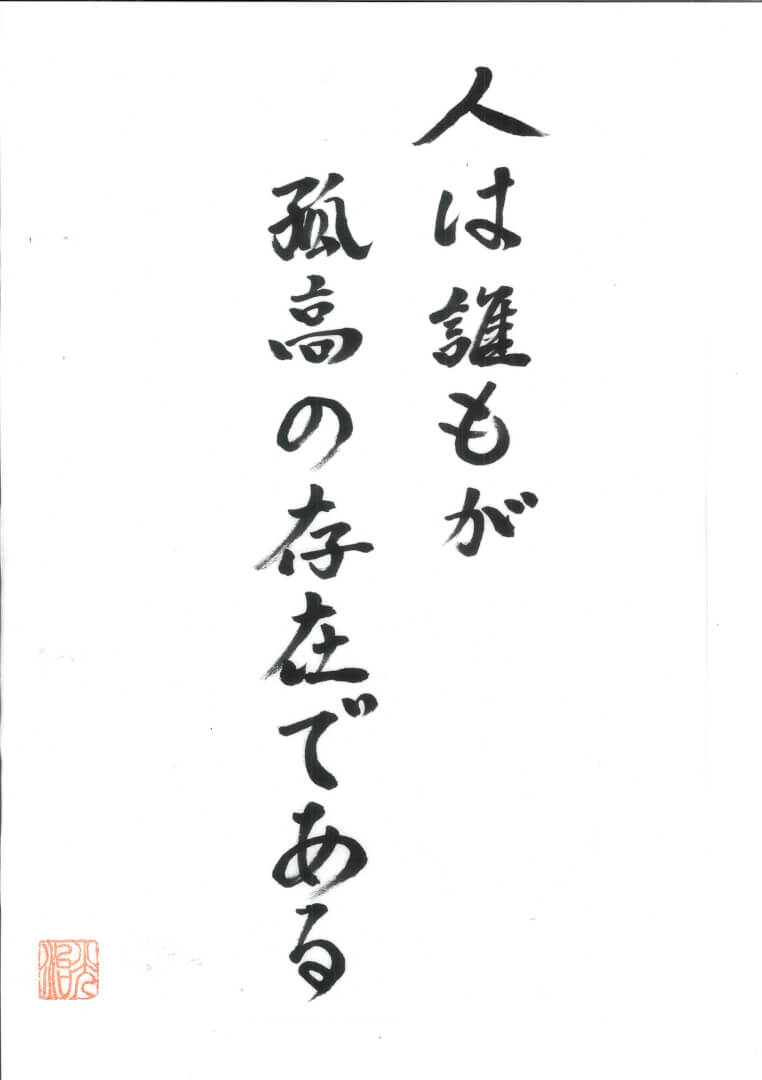 人は誰もが
孤高の存在である